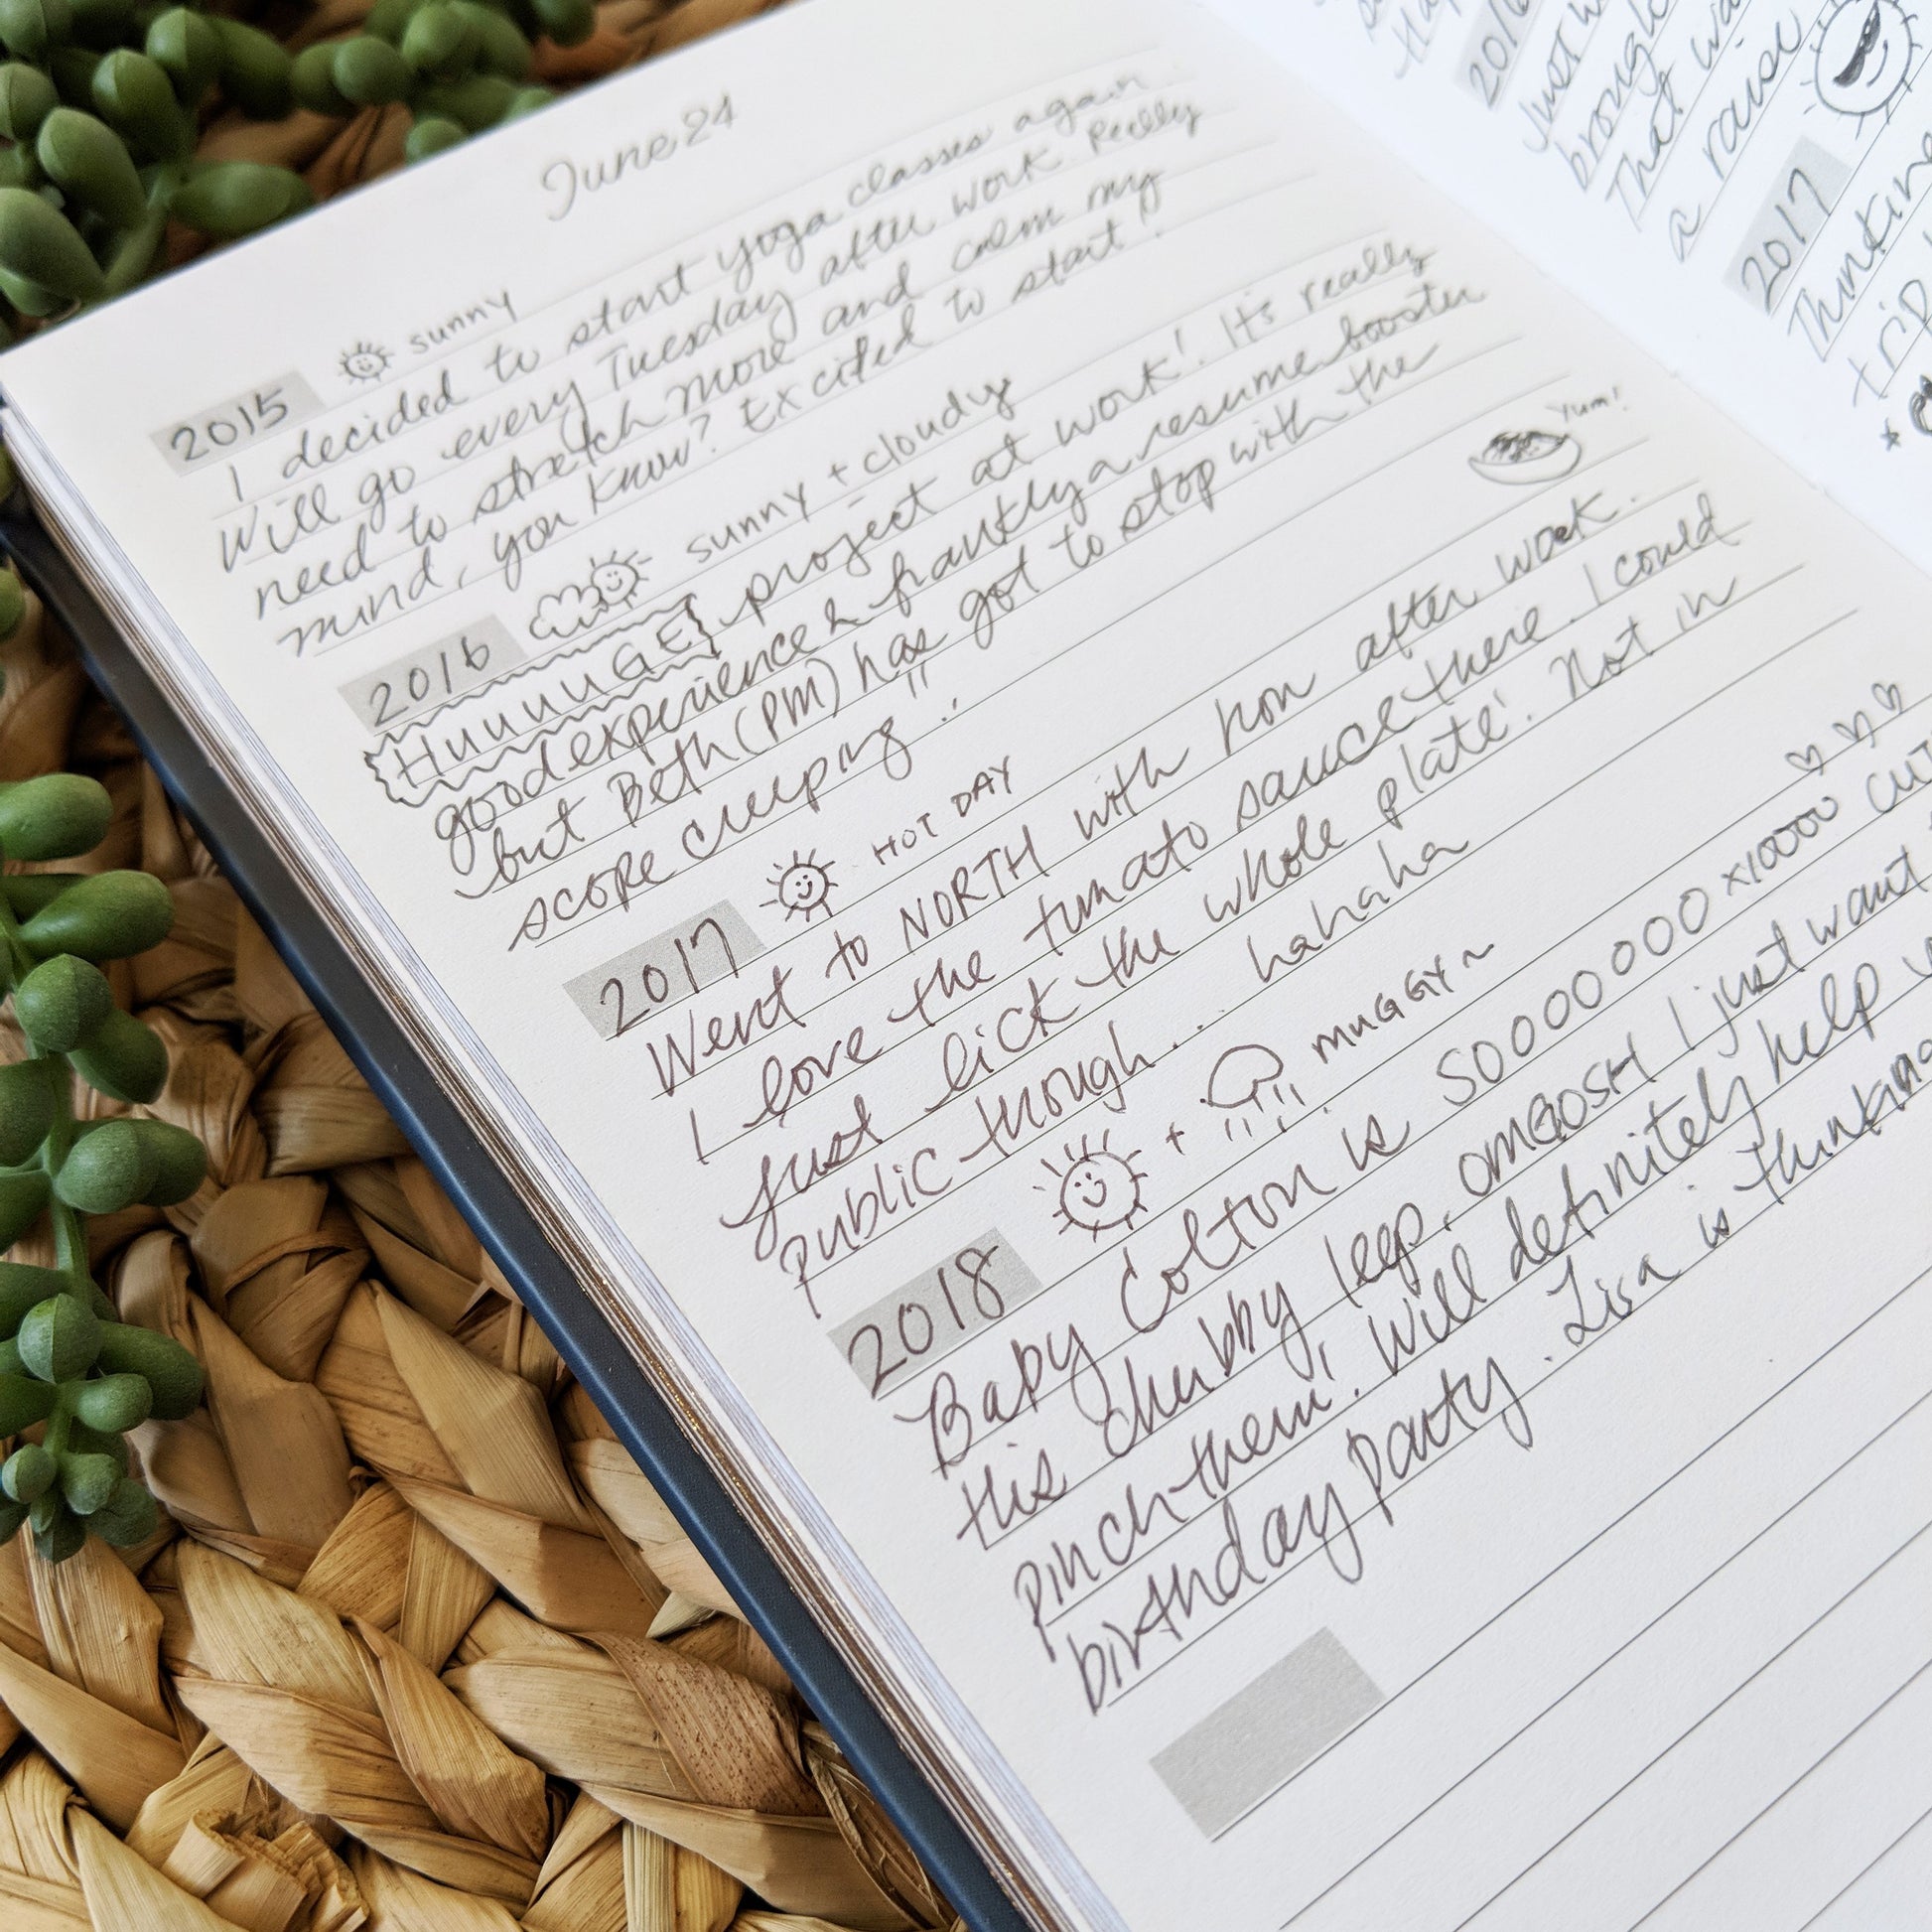 June 24
2015 sunny
I decided to start yoga classes again.
Will go every Tuesday after work. Really
need to stretch more and calm my
mind, you know? Excited to start!
2016 sunny + cloudy
HuuuuGE project at work! It's really
good experience & frankly a resume booster
but Beth (PM) has got to stop with the
scope creeping!!
Yum!
2017 HOT DAY
Went to NORTH with hon after work.
I love the tomato sauce there. I could
just lick the whole plate! Not in
public though... hahaha
2018 + MUGGY~
Baby Colton is SOOOOOOOO x10000
His chubby legs, OMGOSH I just want
pinch them! Will definitely help
birthday party. Lisa is thinking
2016
Just
brough
That wa
a raise
2017
Thinkin
trip